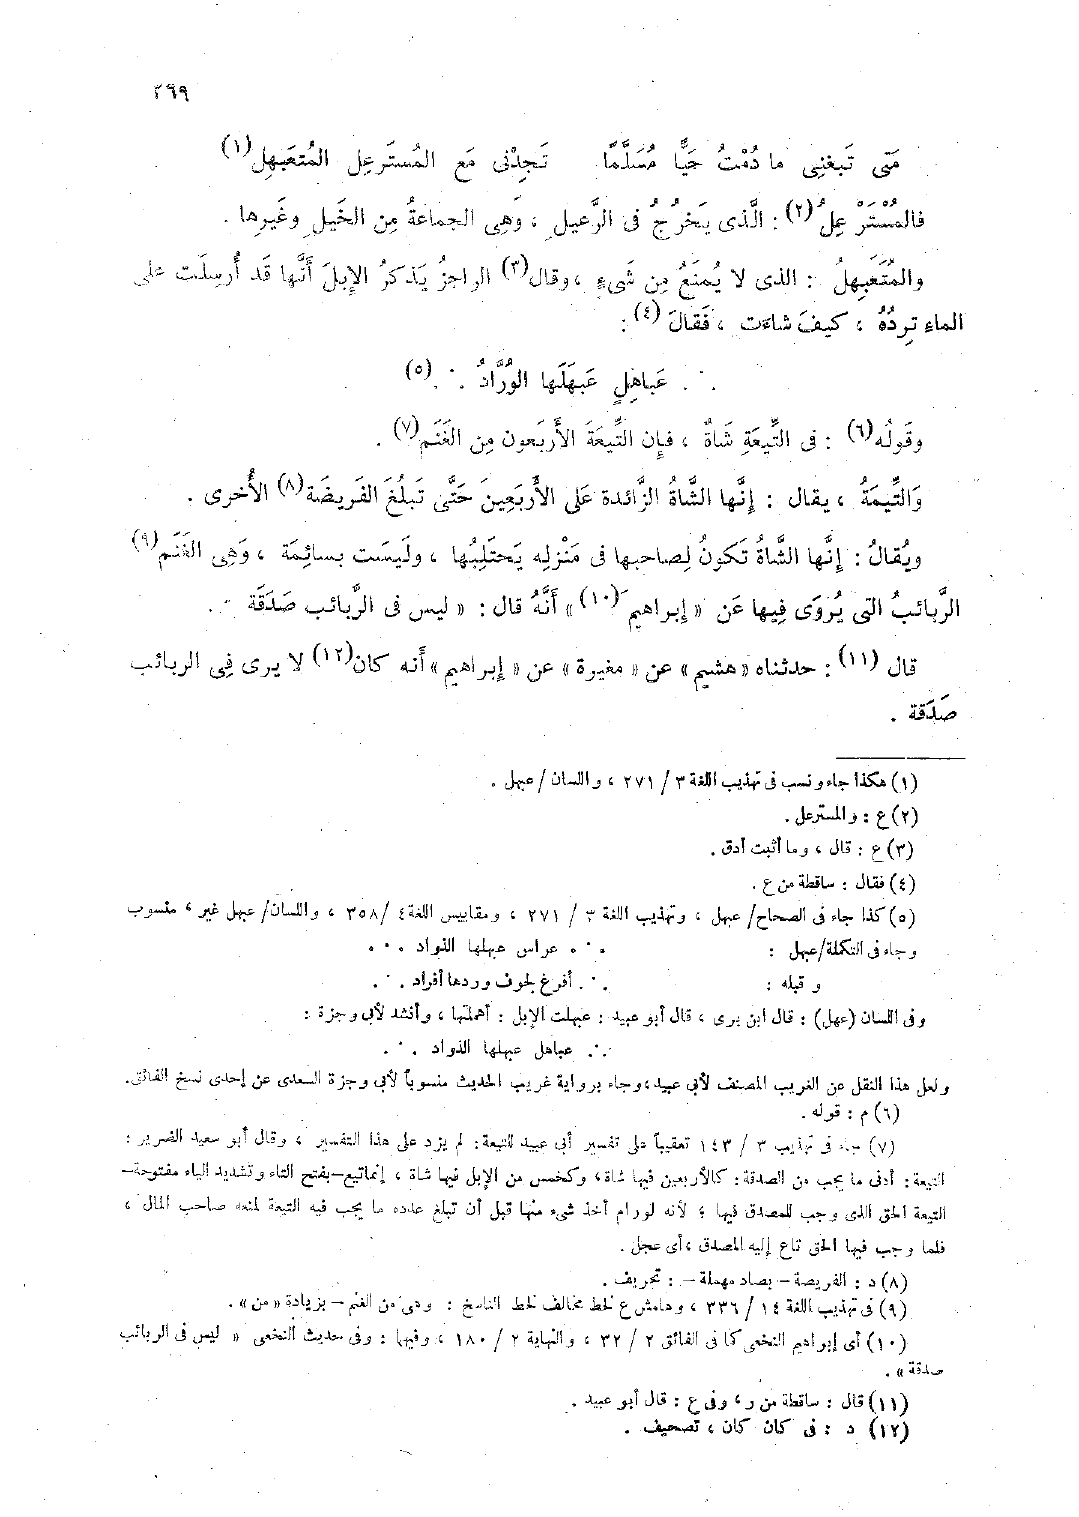 ٢٦٩
مَتى تَبغنِى ما دُمْتُ حَيًّا مُسَلَّمًا تَجِدْنى مَع المُستَرعِل المُتعَبهِل(١)
فالمُسْتَرْعِلُ(٢) : الَّذى يَخرُجُ فى الرَّعيل ، وَهِى الجماعةُ مِن الخَيل وغَيرِها .
والمُتَعَبهِلُ : الذى لا يُمنَعُ مِن شَىءٍ ، وقال(٣) الراجزُ يَذكرُ الإبلَ أَنَّها قَد أُرسِلَت على
الماء تردُهُ ، كيفَ شاءَت ، فَقالَ (٤) :
∴ عَباهِلٍ عَبهَلَها الوُرَّادُ ∴ (٥)
وقَولُه(٦) : فى التِّيعَةِ شَاةٌ ، فإِن التِّيعَةَ الأَربَعون مِن الغَنَم(٧) .
وَالتِّيمَةُ ، يقال : إنَّها الشَّاةُ الزَّائدة عَلى الأَربَعِينَ حَتَّى تَبلُغَ الفَريضَة(٨) الأُخرى .
ويُقالُ : إنَّها الشَّاةُ تَكونُ لِصاحبِها فى مَنْزلِه يَحتَلِبُها ، ولَيسَت بسائِمَة ، وَهِى الغَنَم(٩)
الرَّبائبُ التى يُروَى فِيها عَن « إبراهيمَ (١٠) » أَنَّهُ قال : « ليس فى الرَّبائب صَدَقَة » .
قال (١١) : حدثناه « هشيم » عن « مغيرة » عن « إبراهيم » أَنه كان(١٢) لا يرى فِى الربائب
صَدَقة .
(١) هكذا جاء ونسب فى تهذيب اللغة ٣ / ٢٧١ ، واللسان/ عبهل .
(٢) ع : والمسترعل .
(٣) ع : قال ، وما أثبت أدق .
(٤) فقال : ساقطة من ع .
(٥) كذا جاء فى الصحاح/ عبهل ، وتهذيب اللغة ٣ / ٢٧١ ، ومقاييس اللغة ٤ /٣٥٨ ، واللسان/ عبهل غير منسوب
وجاء فى التكملة/عبهل : ∴ عراس عبهلها الذواد ∴
وقبله : ∴ أفرغ لجوف وردها أفراد ∴
وفى اللسان (عهل) : قال ابن برى ، قال أبو عبيد : عبهلت الإبل : أهملتها ، وأنشد لأبى وجزة :
∴ عباهل عبهلها الذواد ∴
ولعل هذا النقل عن الغريب المصنف لأبى عبيد ، وجاء برواية غريب الحديث منسوباً لأبى وجزة السعدى عن إحدى نسخ الفائق.
(٦) م : قوله .
(٧) جاء فى تهذيب ٣ / ١٤٣ تعقيباً على تفسير أبى عبيد للتيعة: لم يزد على هذا التفسير ، وقال أبو سعيد الضرير :
التيعة: أدنى ما يجب من الصدقة: كالأربعين فيها شاة، وكخمس من الإبل فيها شاة ، إنما تيع–بفتح التاء وتشديد الياء مفتوحة–
التيعة الحق الذى وجب للمصدق فيها ؛ لأنه لو رام أخذ شىء منها قبل أن تبلغ عدده ما يجب فيه التيعة لمنعه صاحب المال ،
فلما وجب فيها الحق تاع إليه المصدق ، أى عجل .
(٨) د : الفريصة – بصاد مهملة – : تحريف .
(٩) فى تهذيب اللغة ١٤ / ٣٣٦ ، وهامش ع بخط مخالف لخط الناسخ : وهى من الغنم – بزيادة « من » .
(١٠) أى إبراهيم النخعى كما فى الفائق ٢ / ٣٢ ، والنهاية ٢ / ١٨٠ ، وفيها : وفى حديث النخعى « ليس فى الربائب
صدقة » .
(١١) قال : ساقطة من ر ، وفى ع : قال أبو عبيد .
(١٢) د : فى كان كان ، تصحيف .